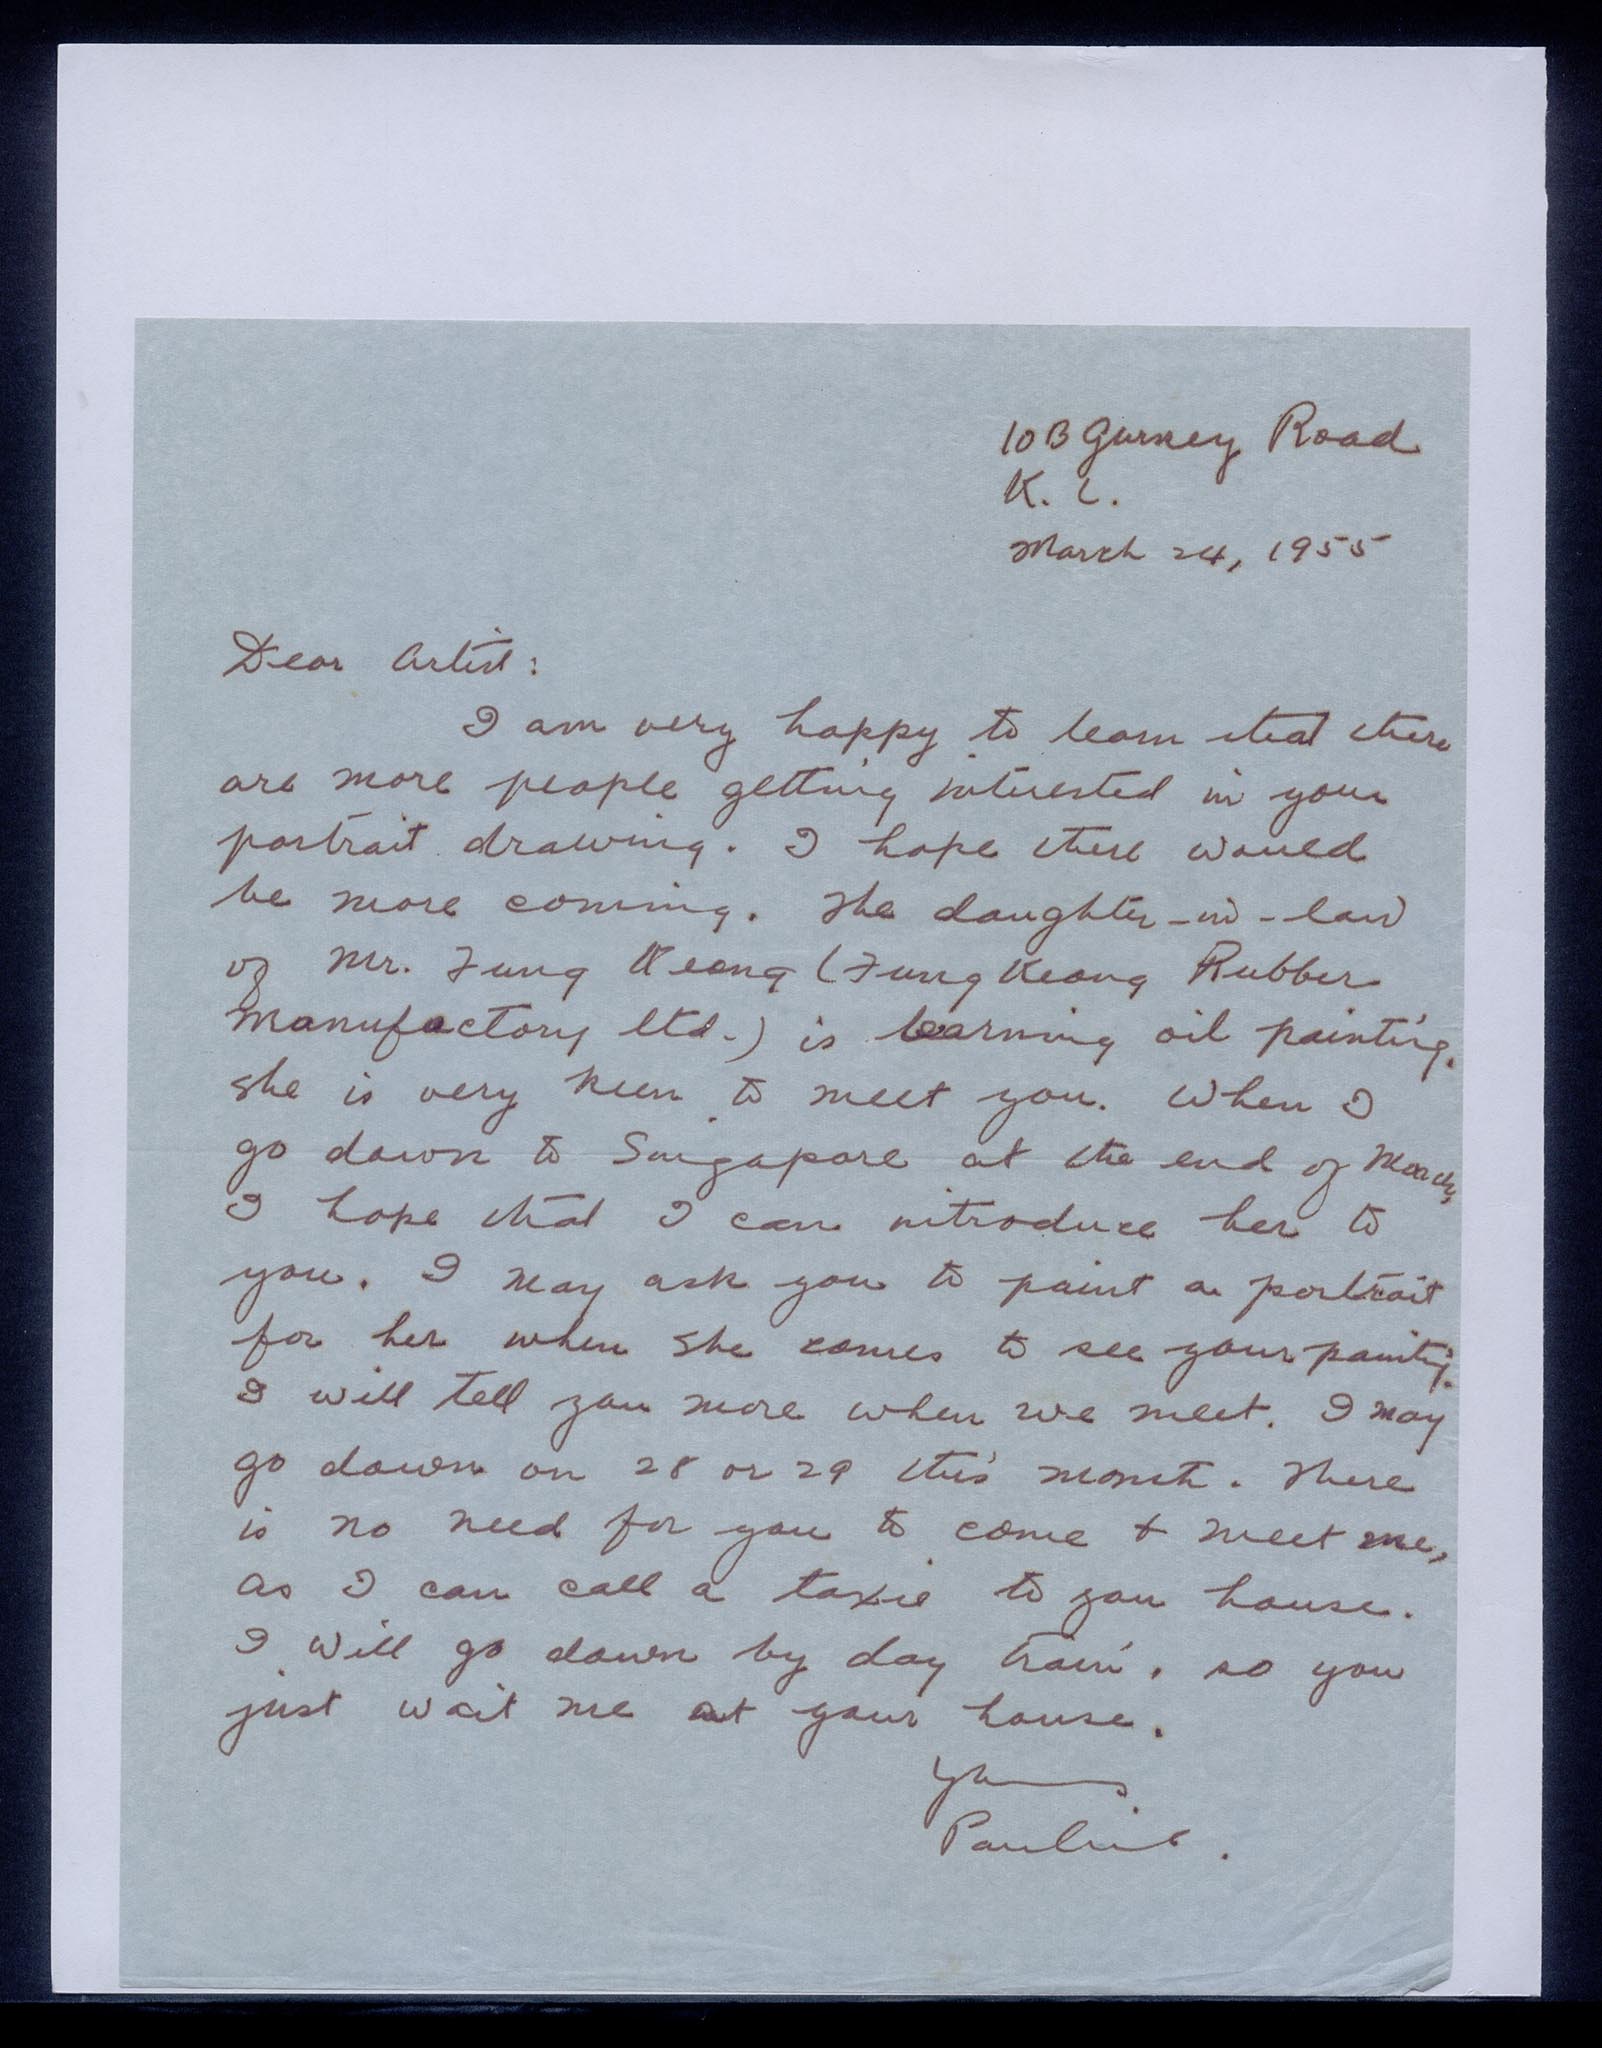 10B Gurney Road
K. L.
March 24, 1955
Dear Artist:
I am very happy to learn that there
are more people getting interested in your
portrait drawing. I hope there would
be more coming. The daughter-in-law
of Mr. Fung Keong (Fung Keong Rubber
Manufactory Ltd.) is learning oil painting.
She is very keen to meet you. When I
go down to Singapore at the end of March,
I hope that I can introduce her to
you. I may ask you to paint a portrait
for her when she comes to see your painting.
I will tell you more when we meet. I may
go down on 28 or 29 this month. There
is no need for you to come + meet me,
as I can call a taxie to you house.
I will go down by day train, so you
just wait me at your house.
Yours
Pauline.